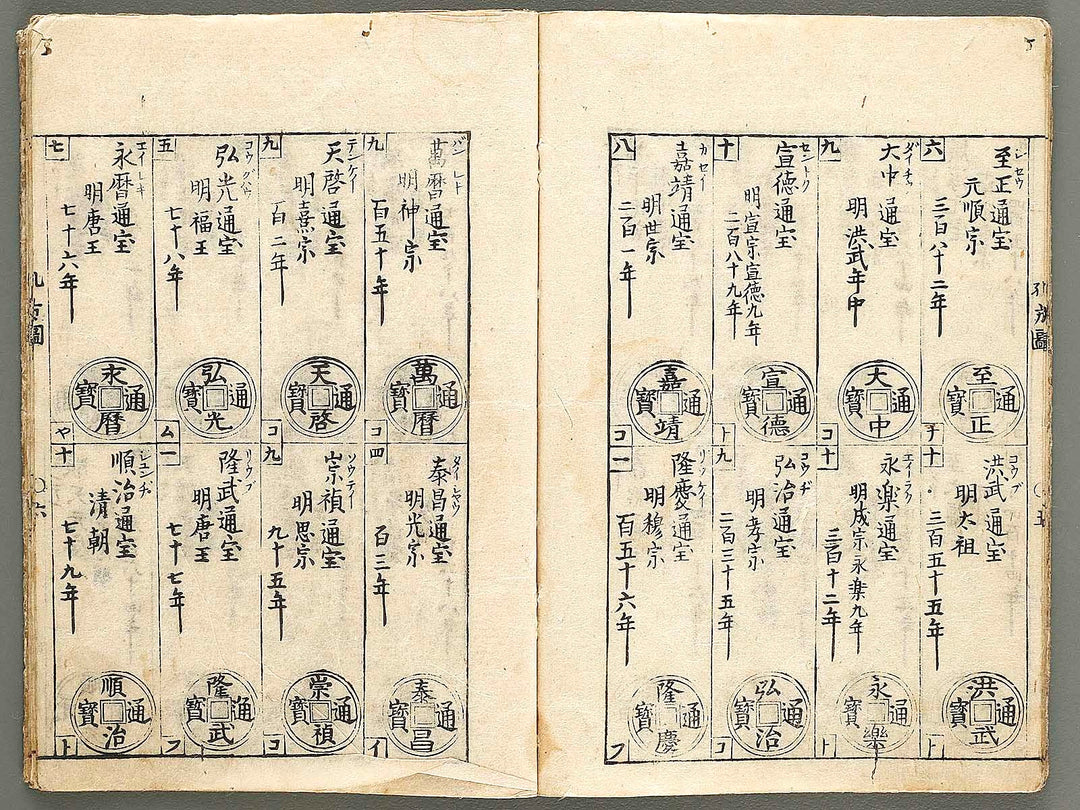 六
至正通宝
元順宗
三百八十二年
至正通寳
チ
九
大中通宝
明洪武年中
大中通寳
コ
十
センドク
宣徳通宝
明宣宗宣徳九年
二百八十九年
宣德通寳
ト
八
カセイ
嘉靖通宝
明世宗
二百一年
嘉靖通寳
コ
十
コウブ
洪武通宝
明太祖
三百五十五年
洪武通寳
ト
十
エイラク
永楽通宝
明成宗永楽九年
三百十二年
永樂通寳
ト
九
コウヂ
弘治通宝
明孝宗
二百三十五年
弘治通寳
コ
一
リウケイ
隆慶通宝
明穆宗
百五十六年
隆慶通寳
フ
九
萬曆通宝
明神宗
百五十年
萬曆通寳
コ
九
テンケイ
天啓通宝
明熹宗
百二年
天啓通寳
コ
五
弘光通宝
明福王
七十八年
弘光通寳
ム
七
エイレキ
永暦通宝
明唐王
七十六年
永曆通寳
ヤ
四
泰昌通宝
明光宗
百三年
泰昌通寳
イ
九
ソウテイ
崇禎通宝
明思宗
九十五年
崇禎通寳
コ
一
リウブ
隆武通宝
明唐王
七十七年
隆武通寳
フ
十
シュンヂ
順治通宝
清朝
七十九年
順治通寳
ト